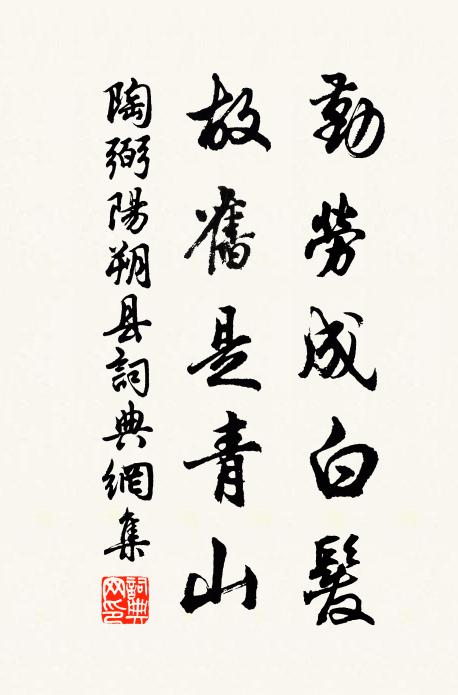 勤勞成白髮
故舊是青山
陶弼陽朔县詞典網集
詞典網印